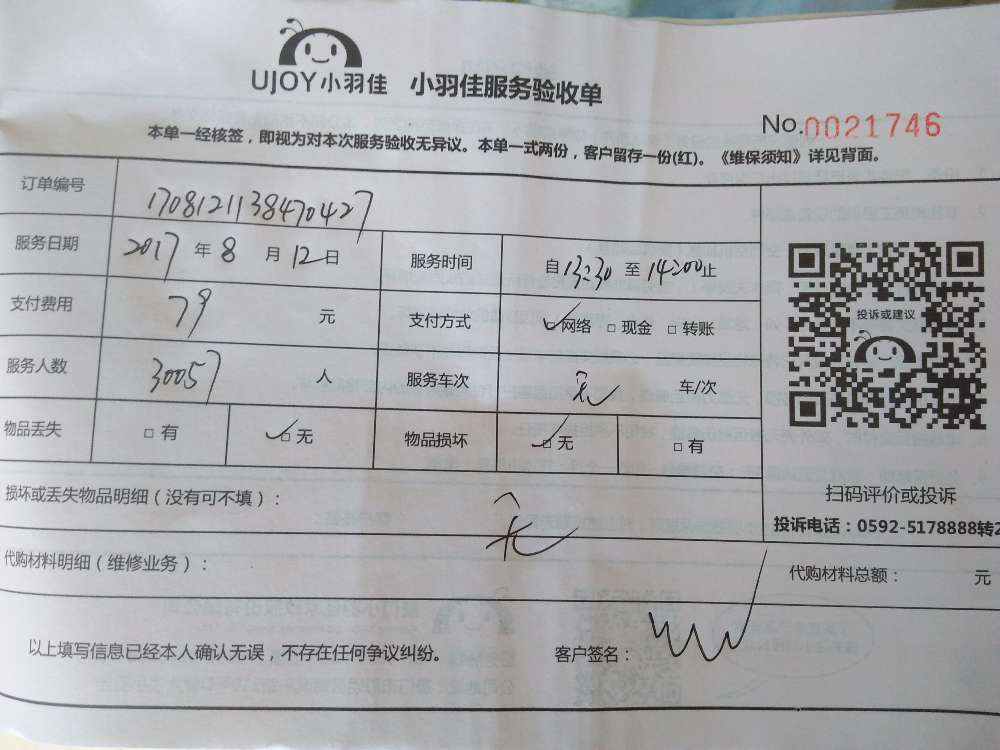 UJOY小羽佳 小羽佳服务验收单
No.0021746
本单一经核签，即视为对本次服务验收无异议。本单一式两份，客户留存一份(红)。《维保须知》详见背面。
订单编号 1708121138470427
服务日期 2017年8月12日 服务时间 自13:30至14:00止
支付费用 79元 支付方式 ☑网络 □现金 □转账
服务人数 30057人 服务车次 无 车/次
物品丢失 □有 ☑无 物品损坏 ☑无 □有
投诉或建议
扫码评价或投诉
投诉电话：0592-5178888转2
损坏或丢失物品明细（没有可不填）： 无
代购材料明细（维修业务）： 代购材料总额： 元
以上填写信息已经本人确认无误，不存在任何争议纠纷。 客户签名：